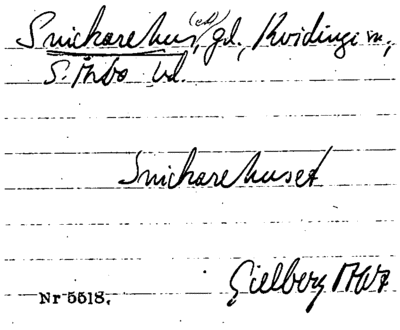 Snickarehus(et), gd., Kvidinge sn.,
S. Åsbo hd.
Snickarehuset
Gielberg 1927
Nr 5518.